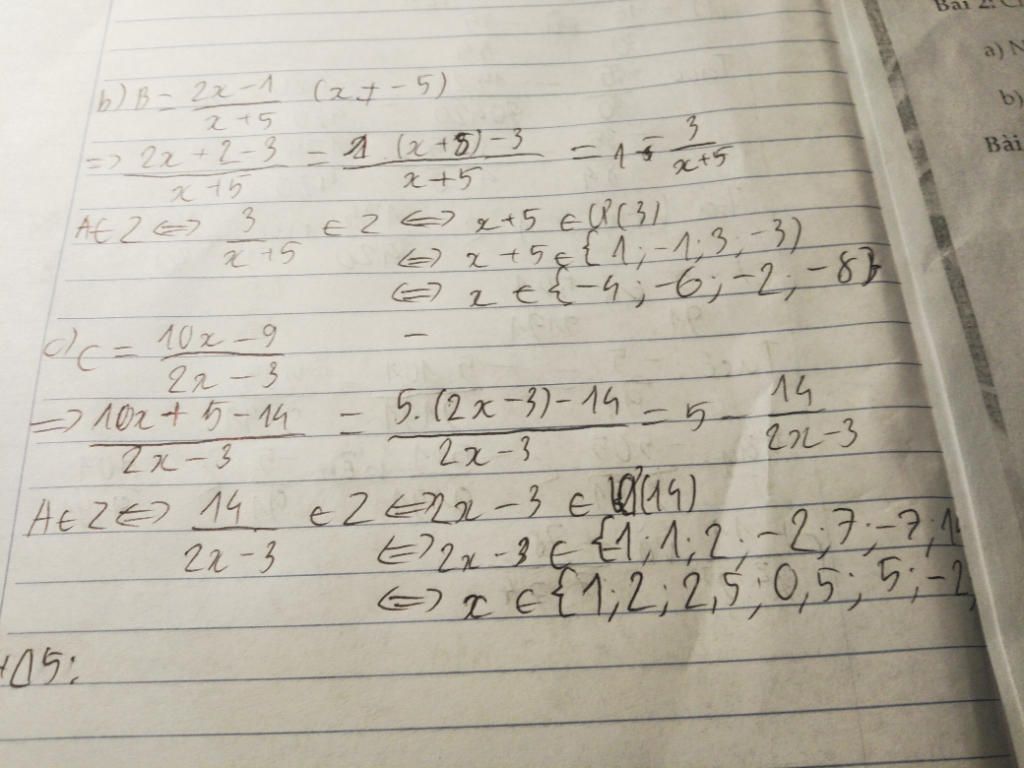 b) B = \frac{2x-1}{x+5} (x ≠ -5)
=> \frac{2x+2-3}{x+5} = \frac{2 (x+5)-3}{x+5} = 1 - \frac{3}{x+5}
A∈Z <=> \frac{3}{x+5} ∈ Z <=> x+5 ∈ Ư(3)
<=> x+5 ∈ {1; -1; 3; -3}
<=> x ∈ {-4; -6; -2; -8}
c) C = \frac{10x-9}{2x-3} -
=> \frac{10x+5-14}{2x-3} = \frac{5.(2x-3)-14}{2x-3} = 5 - \frac{14}{2x-3}
A∈Z <=> \frac{14}{2x-3} ∈ Z <=> 2x-3 ∈ Ư(14)
<=> 2x-3 ∈ {1; 1; 2; -2; 7; -7; 1
<=> x ∈ {1; 2; 2,5; 0,5; 5; -2
5:
Bài 2:
a)
b)
Bài